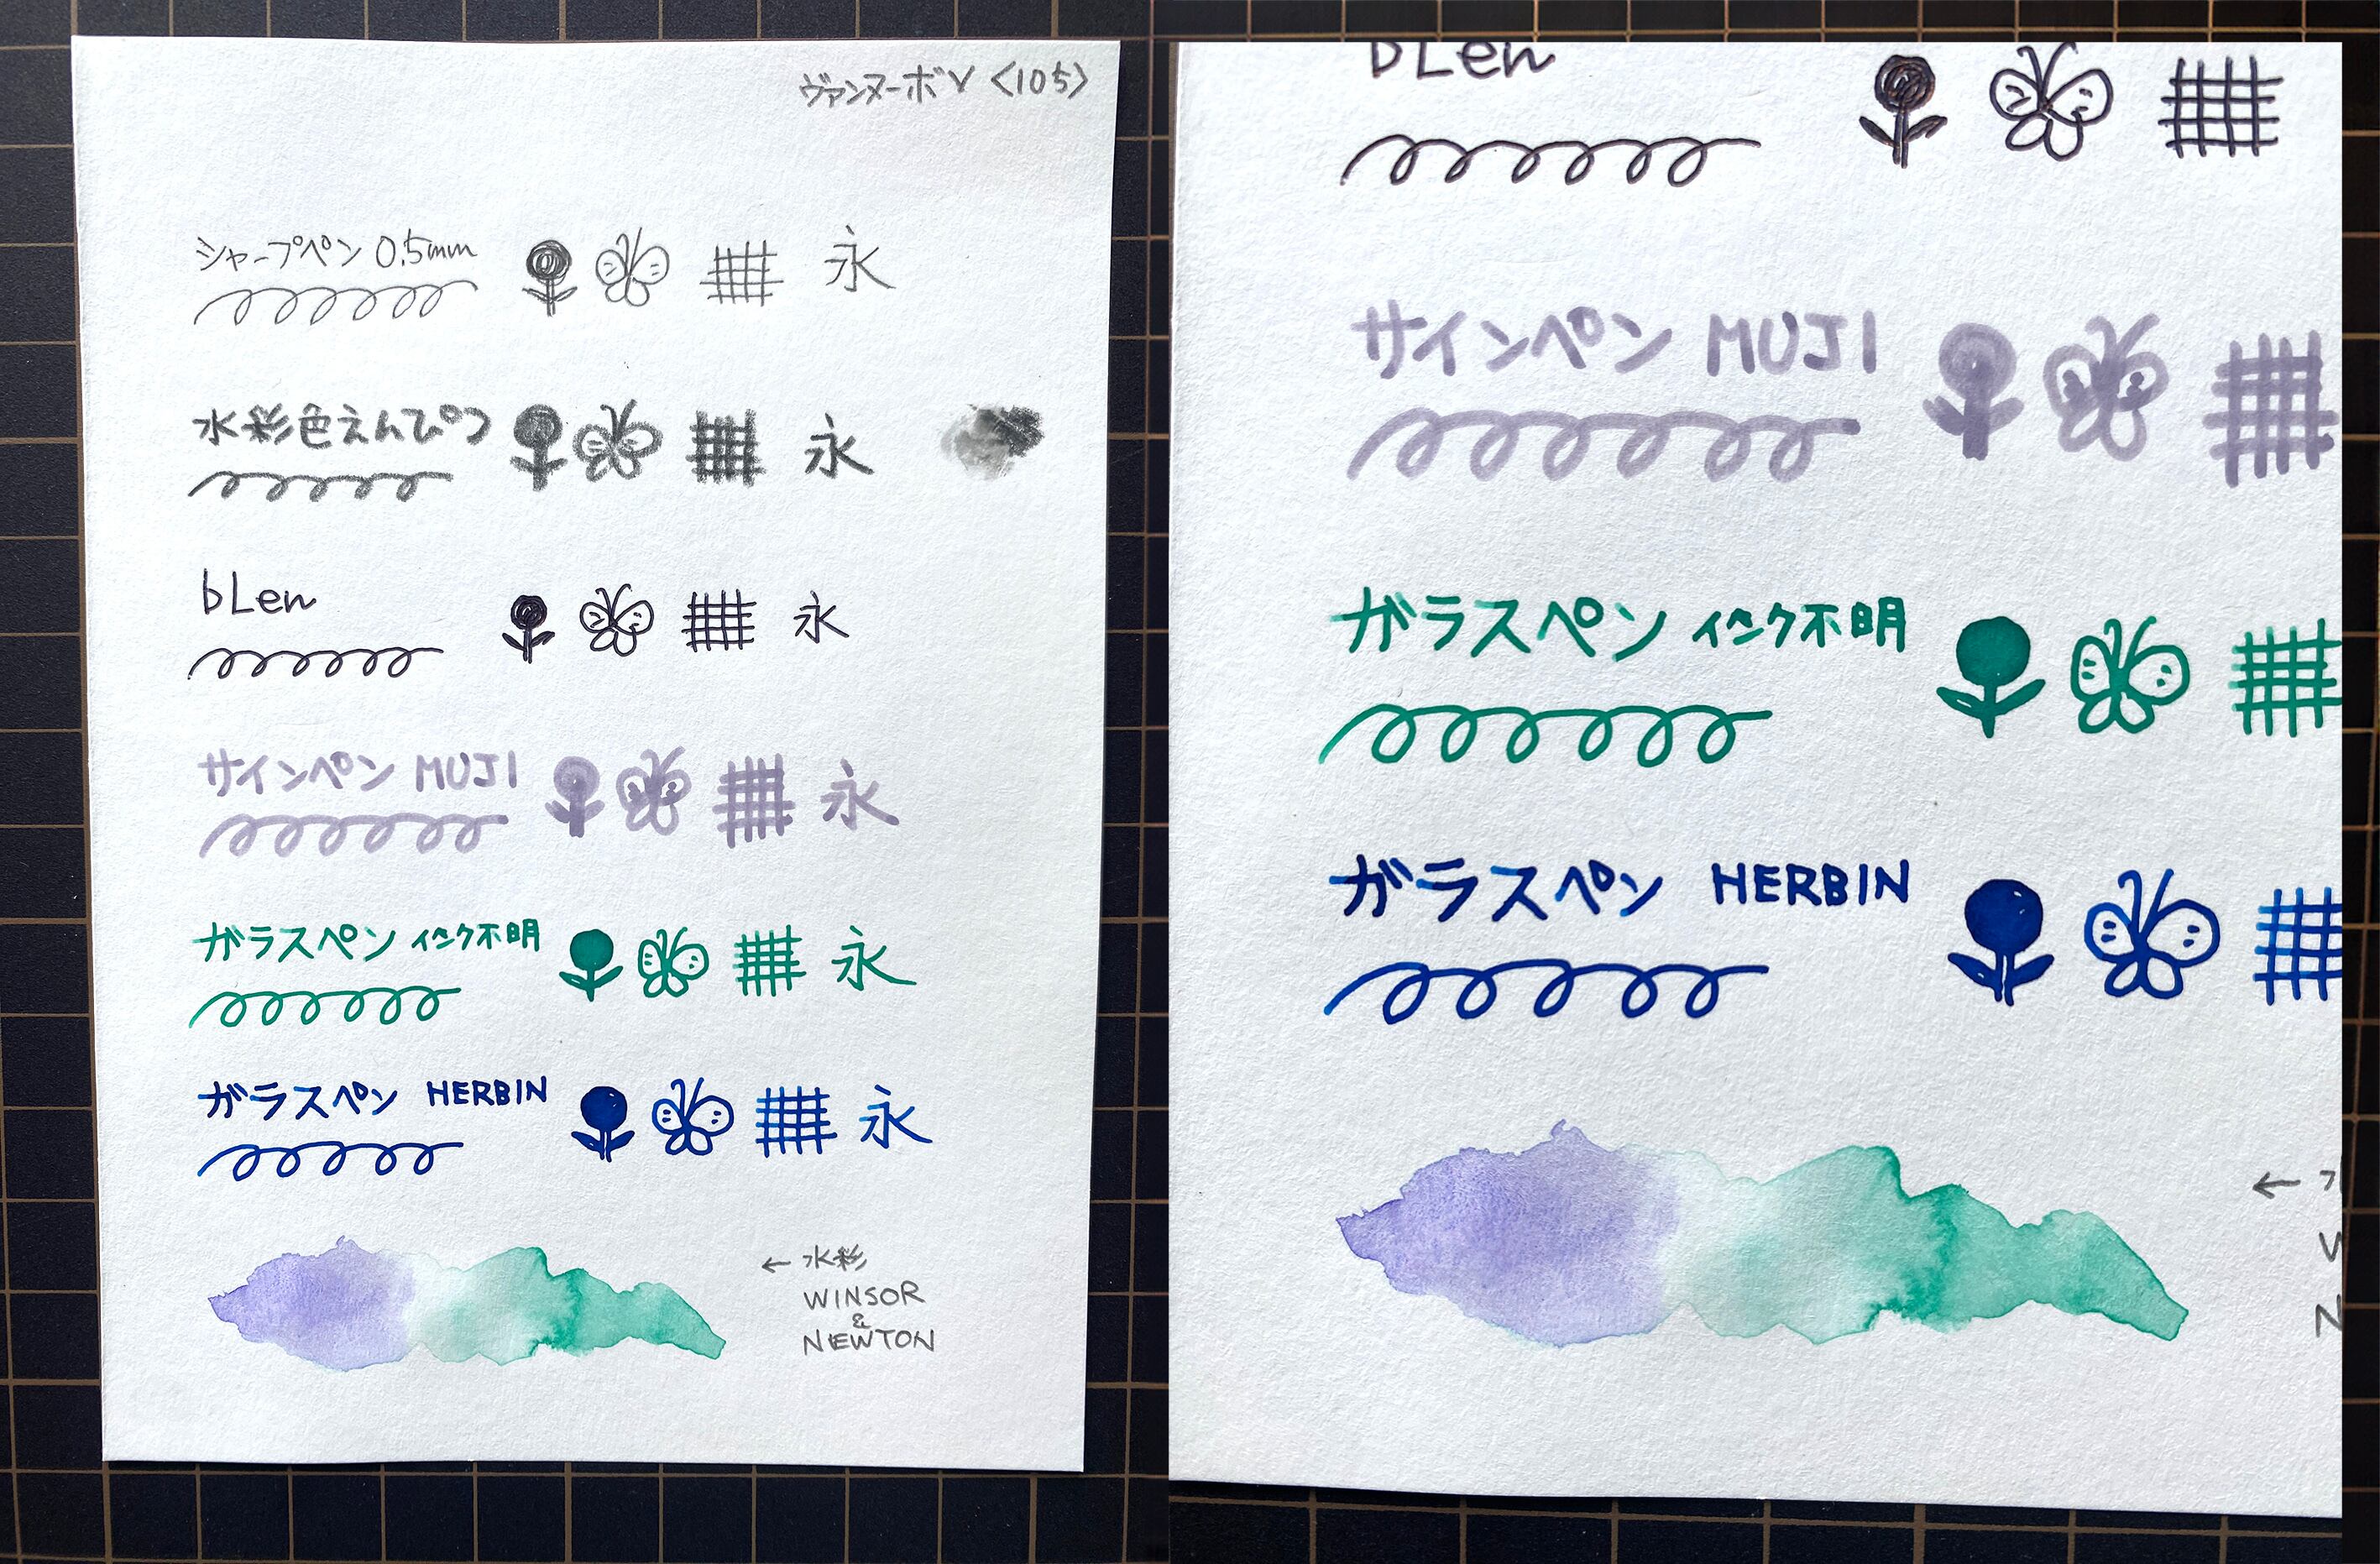 ヴァンヌーボV〈105〉
シャープペン 0.5mm
永
水彩色えんぴつ
永
bLen
永
サインペン MUJI
永
ガラスペン インク不明
永
ガラスペン HERBIN
永
← 水彩
WINSOR
&
NEWTON
bLen
サインペン MUJI
ガラスペン インク不明
ガラスペン HERBIN
←
W
N